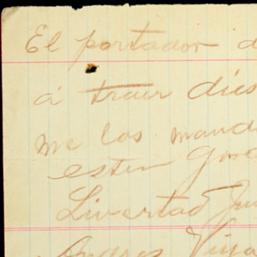 El portador d
á traer dies
me los mand
esten
Libertad Ju
Andres